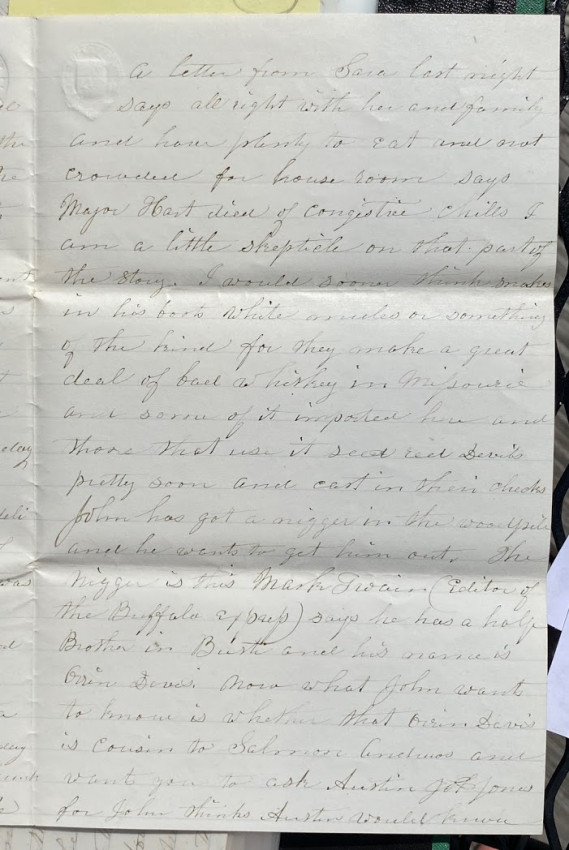 A letter from Sara last night
says all right with her and family
and have plenty to eat and not
crowded for house room says
Major Hart died of congestive chills I
am a little skepticle on that part of
the story. I would sooner think snakes
in his boots white mules or something
of the kind for they make a great
deal of bad whiskey in Missourie
and some of it imported here and
those that use it see red Devils
pretty soon and cast in their checks
John has got a nigger in the woodpile
and he wants to get him out. The
nigger is this Mark Twain (Editor of
the Buffalo Express) says he has a half
Brother in Busti and his name is
Orin Davis. Now what John wants
to know is whether that Orin Davis
is cousin to Salmon Andrus and
want you to ask Austin Jones
for John thinks Austin would know
day
was